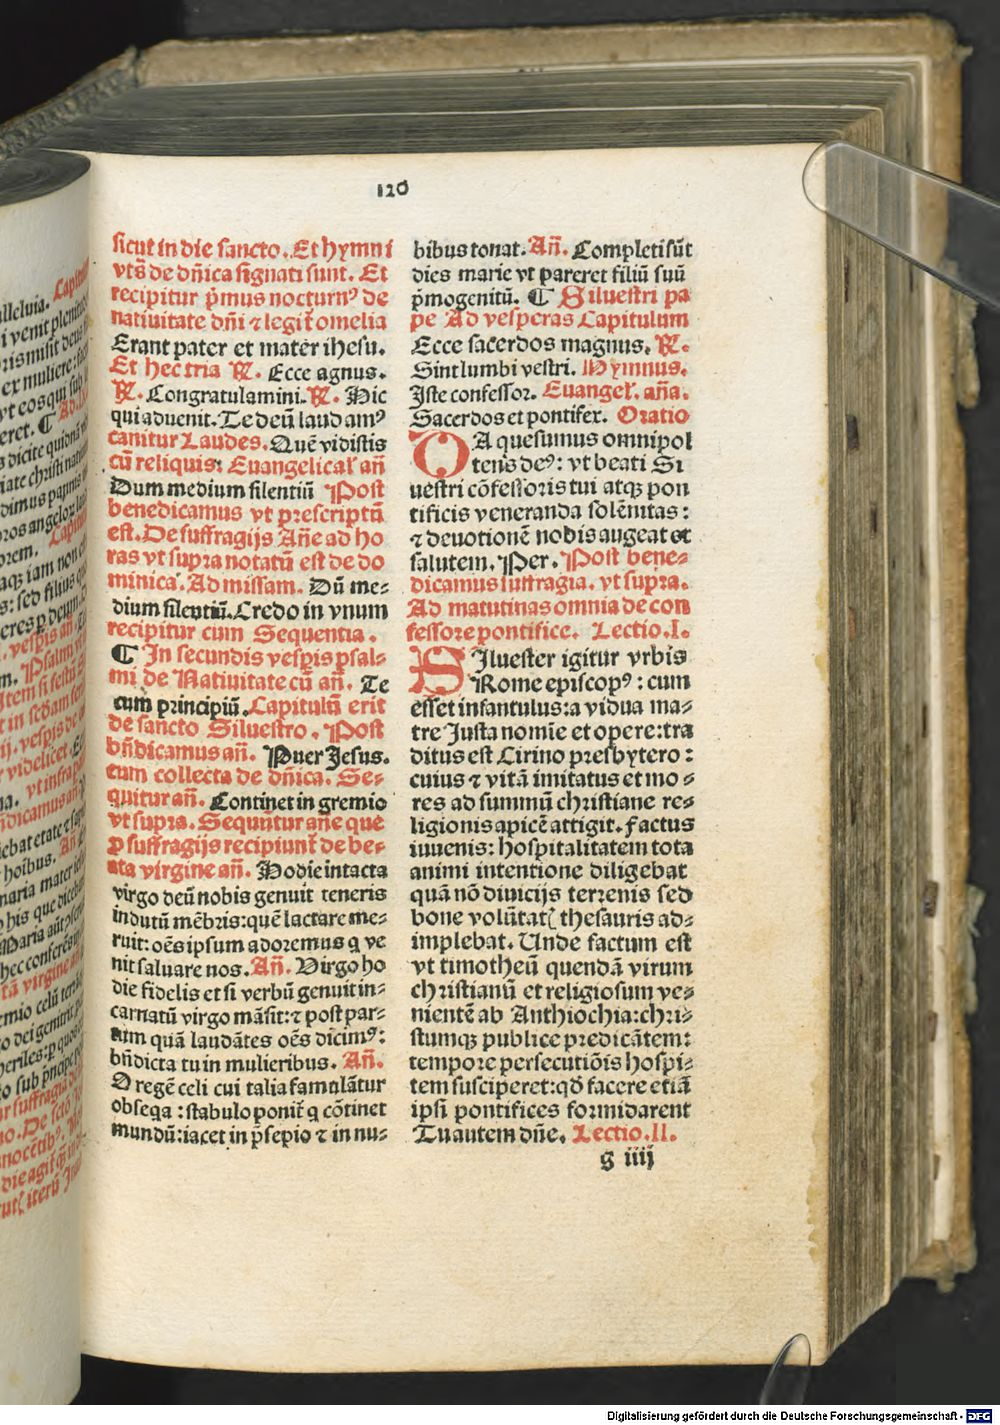 120
sicut in die sancto. Et hymni
vts̄ de dn̄ica signati sunt. Et
recipitur p̄mus nocturnꝰ de
natiuitate dn̄i ⁊ legit̄ omelia
Erant pater et mater ihesu.
Et hec tria ℟. Ecce agnus.
℟. Congratulamini. ℟. Hic
qui aduenit. Te deū laudamꝰ
canitur Laudes. Quē vidistis
cū reliquis: Euangelical̄ an̄
Dum medium silentiū Post
benedicamus vt prescriptū
est. De suffragijs An̄e ad ho
ras vt supra notatū est de do
minica. Ad missam. Dū me⸗
dium silentiū. Credo in vnum
recipitur cum Sequentia.
¶ In secundis vesp̄is psal⸗
mi de Natiuitate cū an̄. Te
cum principiū. Capitulū erit
de sancto Siluestro. Post
bn̄dicamus an̄. Puer Jesus.
cum collecta de dn̄ica. Se⸗
quitur an̄. Continet in gremio
vt supra. Sequūtur an̄e que
ꝑ suffragijs recipiunt̄ de be⸗
ata virgine an̄. Hodie intacta
virgo deū nobis genuit teneris
indutū mēbris: quē lactare me⸗
ruit: oēs ipsum adoremus q ve
nit saluare nos. An̄. Virgo ho
die fidelis et si verbū genuit in⸗
carnatū virgo māsit: ⁊ post par⸗
tum quā laudātes oēs dicimꝰ:
bn̄dicta tu in mulieribus. An̄.
O regē celi cui talia famulātur
obseqa : stabulo ponit̄ q cōtinet
mundū: iacet in p̄sepio ⁊ in nu⸗
bibus tonat. An̄. Completi sūt
dies marie vt pareret filiū suū
p̄mogenitū. ¶ Siluestri pa
pe Ad vesperas Capitulum
Ecce sacerdos magnus. ℟.
Sint lumbi vestri. Hymnus.
Iste confessor. Euangel̄. an̄a.
Sacerdos et pontifex. Oratio
DA quesumus omnipo⸗
tens deꝰ: vt beati Si
uestri cōfessoris tui atqꝫ pon
tificis veneranda solēnitas :
⁊ deuotionē nobis augeat et
salutem. Per. Post bene⸗
dicamus suffragia. vt supra.
Ad matutinas omnia de con
fessore pontifice. Lectio. I.
SIluester igitur vrbis
Rome episcopꝰ : cum
esset infantulus: a vidua ma⸗
tre Justa nomīe et opere: tra
ditus est Cirino presbytero :
cuius ⁊ vitā imitatus et mo⸗
res ad summū christiane re⸗
ligionis apicē attigit. factus
iuuenis: hospitalitatem tota
animi intentione diligebat
quā nō diuicijs terrenis sed
bone volūtatꝭ thesauris ad⸗
implebat. Unde factum est
vt timotheū quendā virum
christianū et religiosum ve⸗
nientē ab Anthiochia: chri⸗
stumqꝫ publice predicātem:
tempore persecutiōis hospi⸗
tem susciperet: qđ facere etiā
ipsi pontifices formidarent
Tu autem dn̄e. Lectio. II.
g iiij
Digitalisierung gefördert durch die Deutsche Forschungsgemeinschaft - DFG